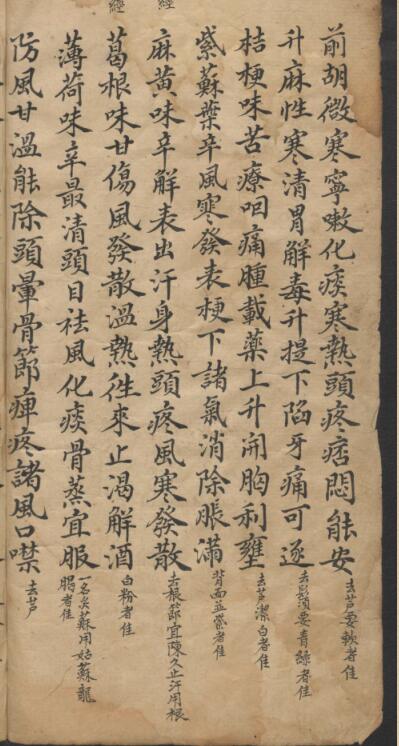 前胡微寒寧嗽化痰寒熱頭疼痞悶能安去芦要軟者佳
升麻性寒清胃解毒升提下陷牙痛可逐去鬚要青綠者佳
桔梗味苦療咽痛腫載藥上升開胸利壅去芦潔白者佳
紫蘇葉辛風寒發表梗下諸氣消除脹滿背面並紫者佳
麻黃味辛解表出汗身熱頭疼風寒發散去根節宜陳久止汗用根
葛根味甘傷風發散溫熱徃來止渴解酒白粉者佳
薄荷味辛最清頭目祛風化痰骨蒸宜服一名炎蘇用姑蘇龍腦者佳
防風甘溫能除頭暈骨節痺疼諸風口噤去芦
經
經